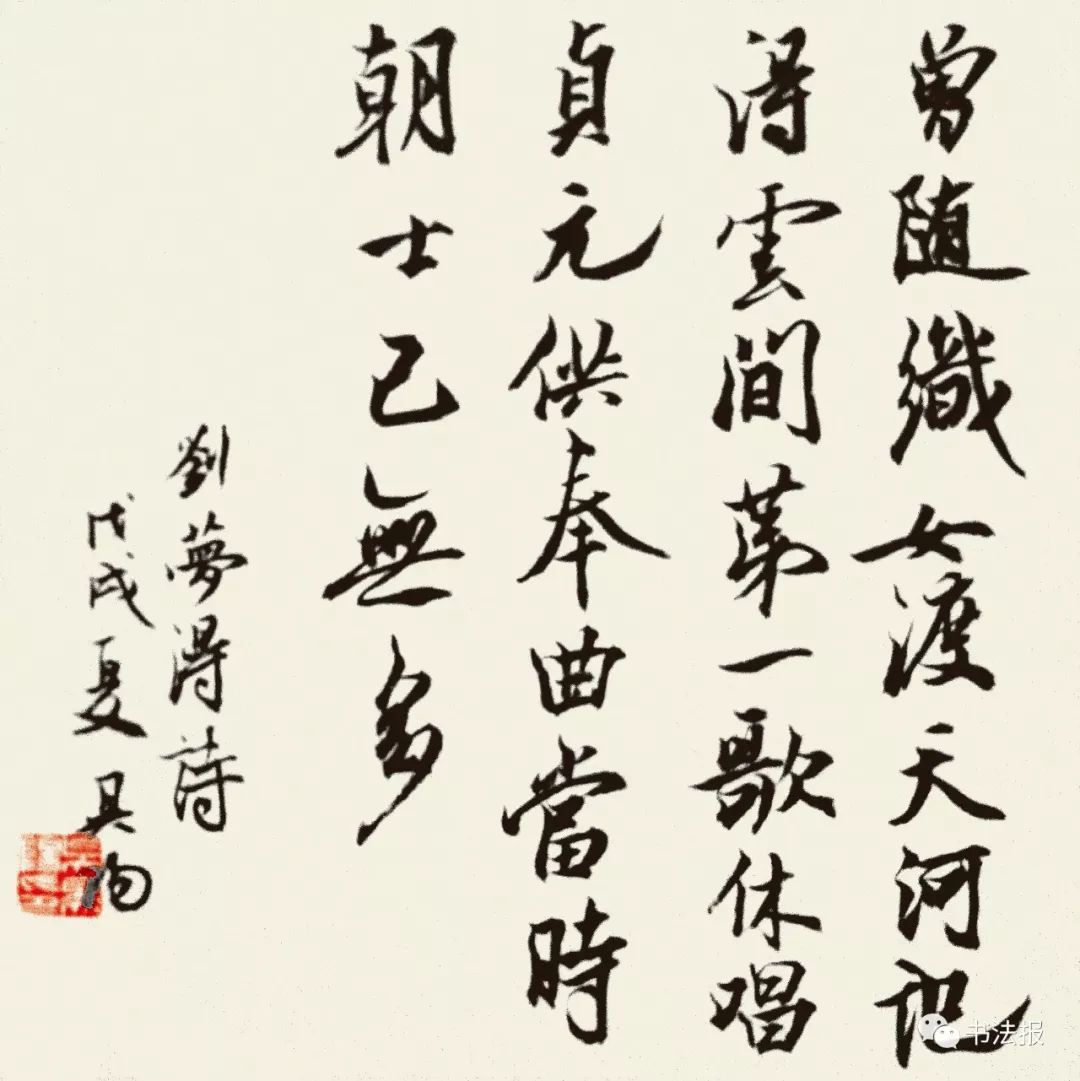 曾随織女渡天河記
得雲間第一歌休唱
貞元供奉曲當時
朝士已無多
劉夢得詩
戊戌夏
书法报